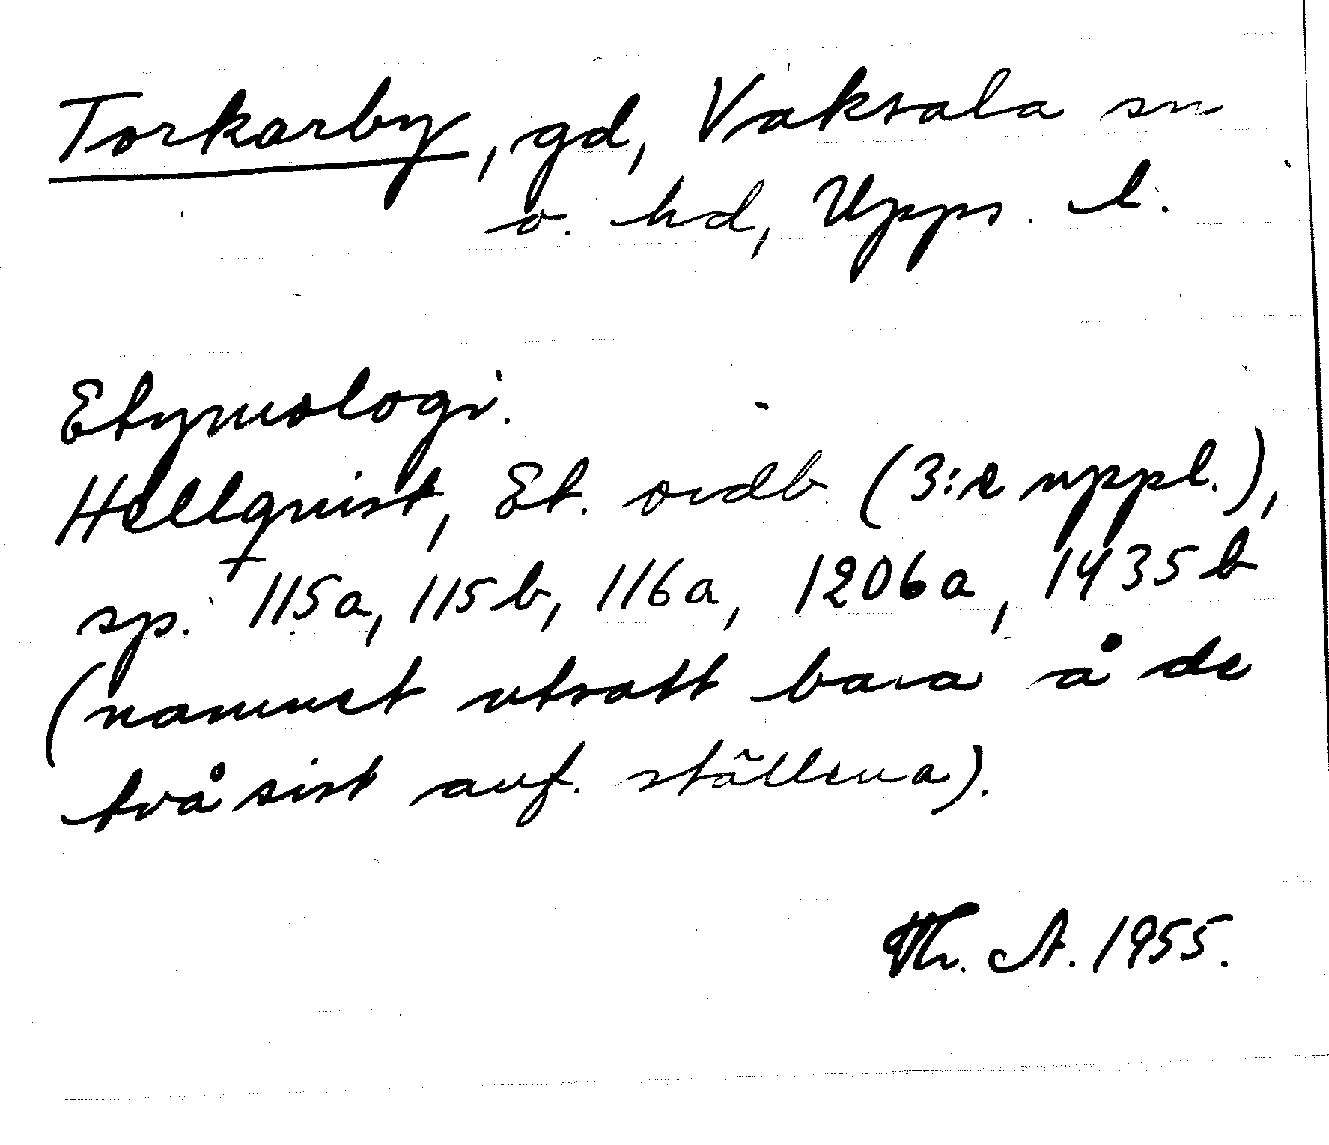 Torkarby, gd, Vaksala sn
o. hd, Upps. l.
Etymologi.
Hellquist, Et. ordb (3:e uppl.),
sp. 115a, 115b, 116a, 1206a, 1435b
(namnet utsatt bara å de
två sist anf. ställena).
Th. A. 1955.